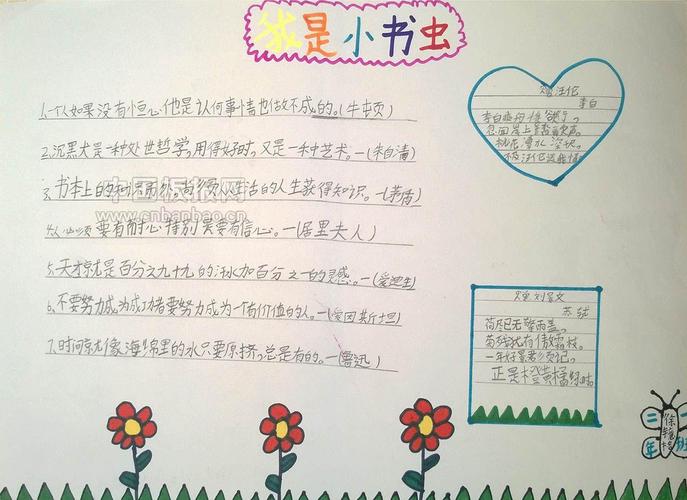 我是小书虫
1.一个人如果没有恒心,他是认何事情也做不成的。(牛顿)
2.沉黑犬是一种处世哲学,用得好时,又是一种艺术。—(朱自清)
3.书本上的知识而外,尚须从生活的人生获得知识。(茅盾)
要有耐心,特别是要有信心。—(居里夫人)
5.天才就是百分之九十九的汗水加百分之一的灵感。—(爱迪生)
6.不要努力成为成功者要努力成为一个有价值的人。(爱因斯坦)
7.时间就像海绵里的水只要原挤,总是有的。—(鲁迅)
中国板报网
www.cnbanbao.cn
赠汪伦
李白
李白
忽闻岸上踏歌声。
桃花潭水深
不及汪伦送我情。
赠刘景文
苏轼
荷尽已无擎雨盖,
菊残犹有傲霜枝。
一年好景君须记,
正是橙黄橘绿时。
二年
班